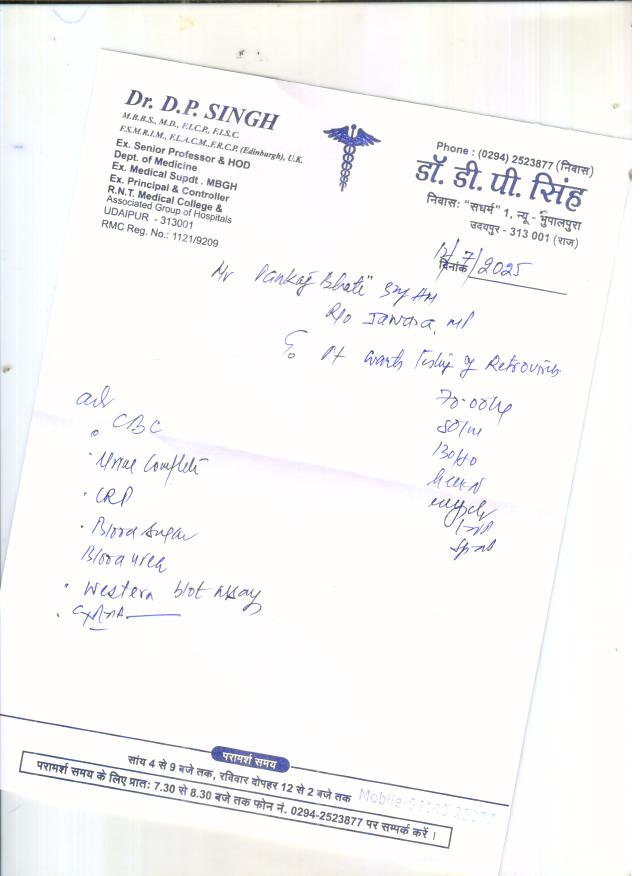 Dr. D.P. SINGH
M.B.B.S., M.D., F.I.C.P., F.I.S.C.
F.S.M.R.I.M., F.I.A.C.M., F.R.C.P. (Edinburgh), U.K.
Ex. Senior Professor & HOD
Dept. of Medicine
Ex. Medical Supdt . MBGH
Ex. Principal & Controller
R.N.T. Medical College &
Associated Group of Hospitals
UDAIPUR - 313001
RMC Reg. No.: 1121/9209
Phone : (0294) 2523877 (निवास)
डॉ. डी. पी. सिंह
निवास: "सधर्म" 1, न्यू - भुपालपुरा
उदयपुर - 313 001 (राज)
दिनांक 12/7/2025
Mr Pankaj Bhati
R/o Jawara, MP
Pt wants Testing of Retrovirus
adv
CBC
Urine Complete
CRP
Blood Sugar
Blood urea
Western blot assay
80/m
परामर्श समय
सांय 4 से 9 बजे तक, रविवार दोपहर 12 से 2 बजे तक
परामर्श समय के लिए प्रात: 7.30 से 8.30 बजे तक फोन नं. 0294-2523877 पर सम्पर्क करें ।